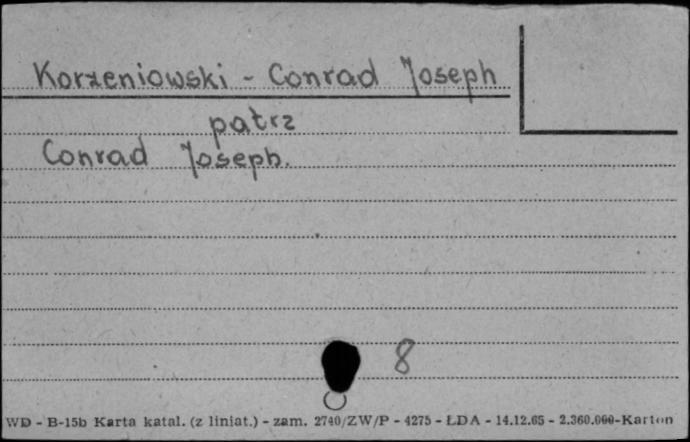 Korzeniowski - Conrad Joseph
patrz
Conrad Joseph.
8
WD - B-15b Karta katal. (z liniat.) - zam. 2740/ZW/P - 4275 - ŁDA - 14.12.65 - 2.360.000-Karton